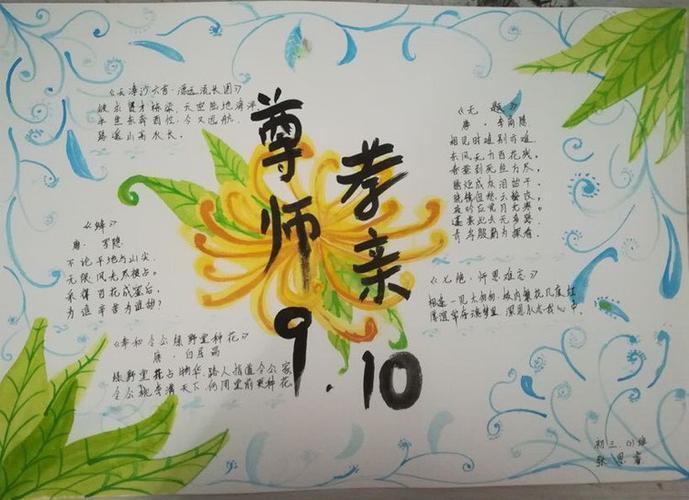 尊师
孝亲
9.10
《天净沙六言·源远流长图》
路遥山高水长。
《蜂》
唐·罗隐
不论平地与山尖
无限风光尽被占。
采得百花成蜜后,
为谁辛苦为谁甜?
《奉和令公绿野堂种花》
唐·白居易
绿野堂开占物华,路人指道令公家
令公桃李满天下,何用堂前更种花
《无题》
唐·李商隐
相见时难别亦难,
东风无力百花残。
春蚕到死丝方尽,
蜡炬成灰泪始干。
晓镜但愁云鬓改,
夜吟应觉月光寒。
蓬莱此去无多路,
青鸟殷勤为探看。
《七绝·师恩难忘》
深恩永志我心中
初三.(1)班